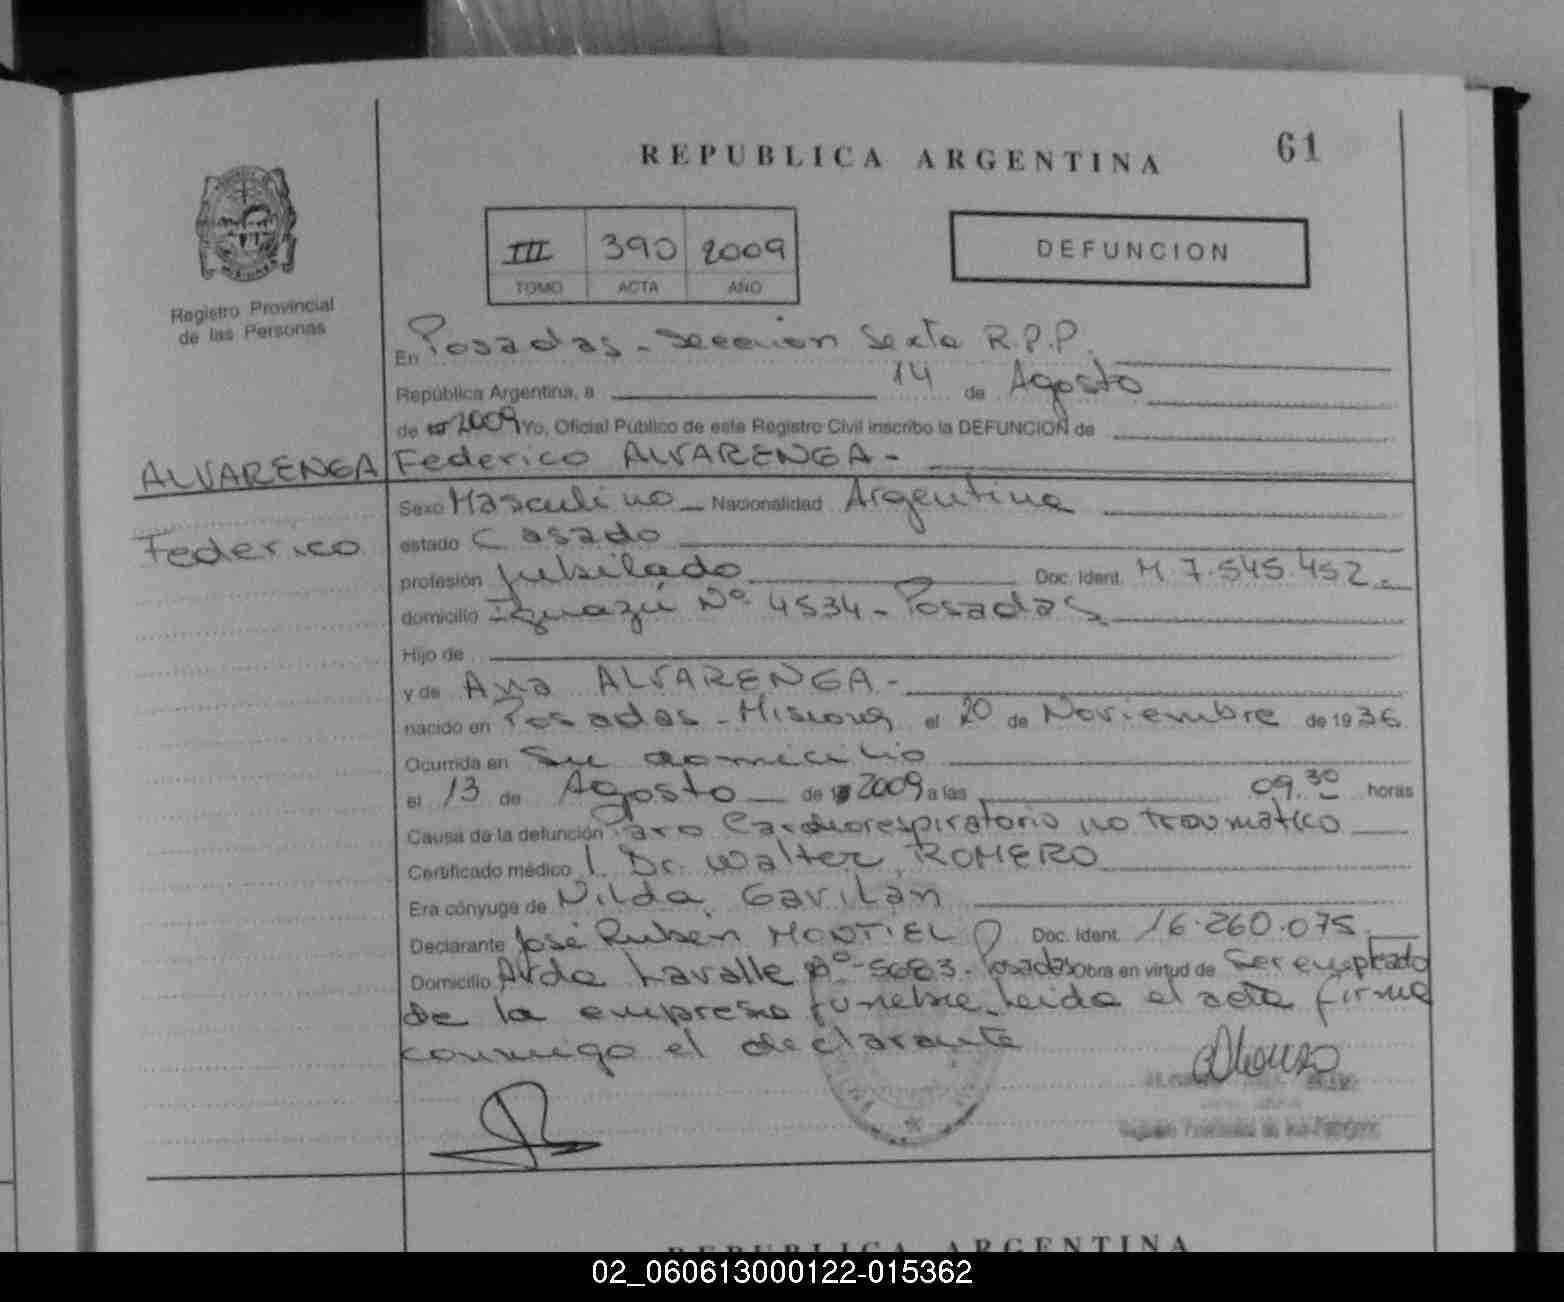 REPUBLICA ARGENTINA
61
III 390 2009
TOMO ACTA AÑO
DEFUNCION
Registro Provincial
de las Personas
En Posadas - Sección Sexta R.P.P.
República Argentina, a 14 de Agosto
de 2009 Yo, Oficial Público de este Registro Civil inscribo la DEFUNCION de
ALVARENGA
Federico ALVARENGA -
Federico
Sexo Masculino Nacionalidad Argentina
estado Casado
profesión Jubilado Doc. Ident. M 7.545.452.-
domicilio Iguazú Nº 4534 - Posadas
Hijo de
y de Ana ALVARENGA -
nacido en Posadas - Misiones el 20 de Noviembre de 1936
Ocurrida en Su domicilio
el 13 de Agosto de 2009 a las 09.30 horas
Causa de la defunción Paro Cardiorespiratorio no traumático
Certificado médico Dr. Walter ROMERO
Era cónyuge de Nilda Gavilán
Declarante José Ruben MONTIEL Doc. Ident. 16.260.075
Domicilio Avda Lavalle Nº 5683 - Posadas obra en virtud de ser empleado
de la empresa funebre. Leida el acta firma
conmigo el declarante
REPUBLICA ARGENTINA
02_060613000122-015362